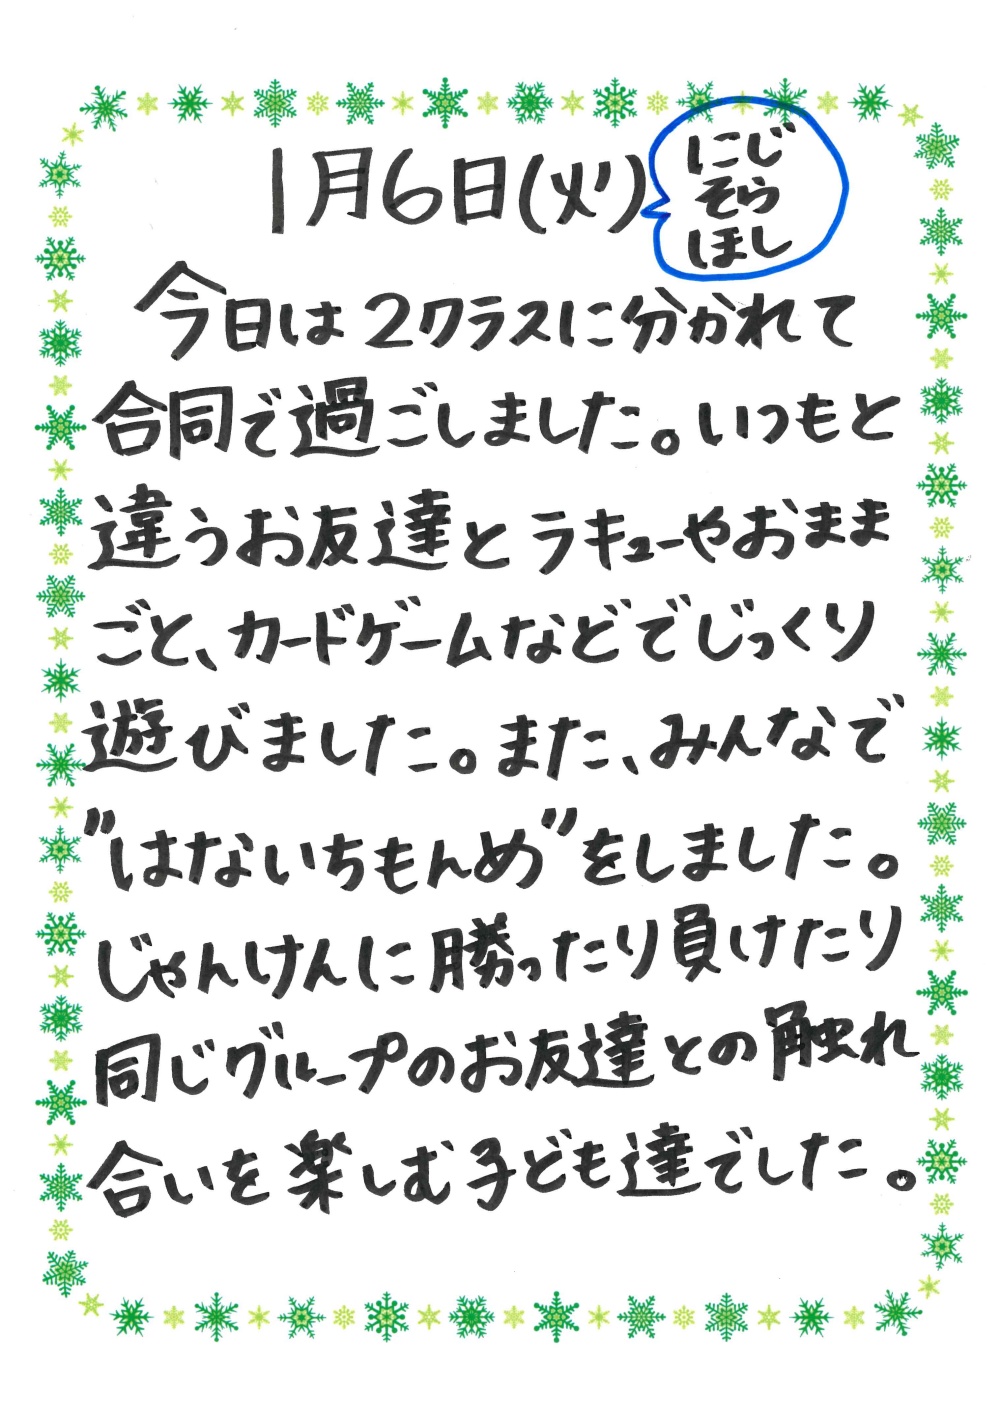 1月6日(火)
にじ
そら
ほし
今日は2クラスに分かれて
合同で過ごしました。いつもと
違うお友達とラキューやおまま
ごと、カードゲームなどでじっくり
遊びました。また、みんなで
"はないちもんめ"をしました。
じゃんけんに勝ったり負けたり
同じグループのお友達との触れ
合いを楽しむ子ども達でした。